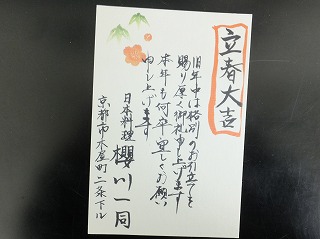 立春大吉
旧年中は格別のお引立てを
賜り厚く御礼申し上げます
本年も何卒宜しくお願い
申し上げます
日本料理 櫻川一同
京都市木屋町二条下ル